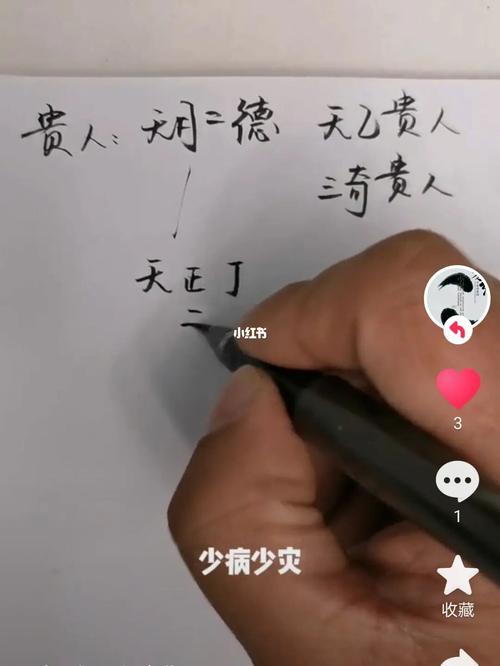 貴人：天月二德 天乙貴人
三奇貴人
天正丁
二
小红书
少病少灾
3
1
收藏